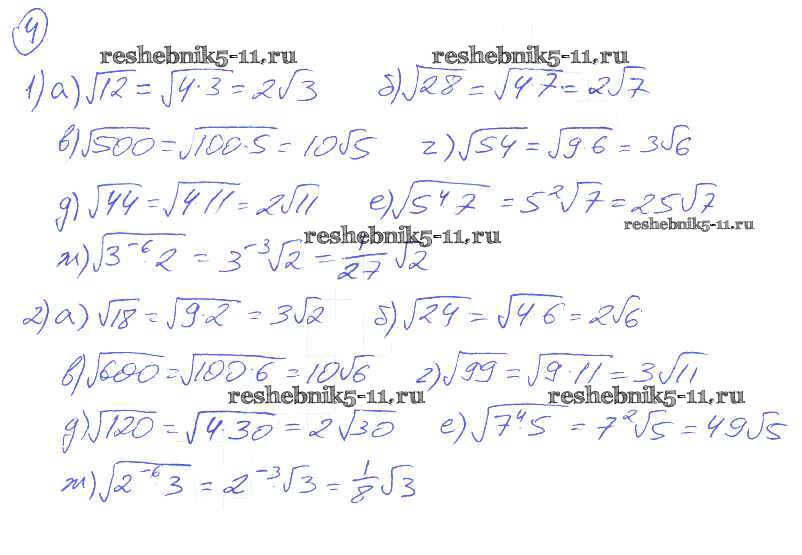 4
reshebnik5-11.ru reshebnik5-11.ru
1) а) √12 = √4·3 = 2√3 б) √28 = √4 7 = 2√7
в) √500 = √100·5 = 10√5 г) √54 = √9·6 = 3√6
д) √44 = √4 11 = 2√11 е) √5⁴ 7 = 5²√7 = 25√7
reshebnik5-11.ru
reshebnik5-11.ru
ж) √3⁻⁶·2 = 3⁻³√2 = 1/27 √2
2) а) √18 = √9·2 = 3√2 б) √24 = √4 6 = 2√6
в) √600 = √100·6 = 10√6 г) √99 = √9·11 = 3√11
reshebnik5-11.ru reshebnik5-11.ru
д) √120 = √4·30 = 2√30 е) √7⁴·5 = 7²√5 = 49√5
ж) √2⁻⁶·3 = 2⁻³·√3 = 1/8 √3